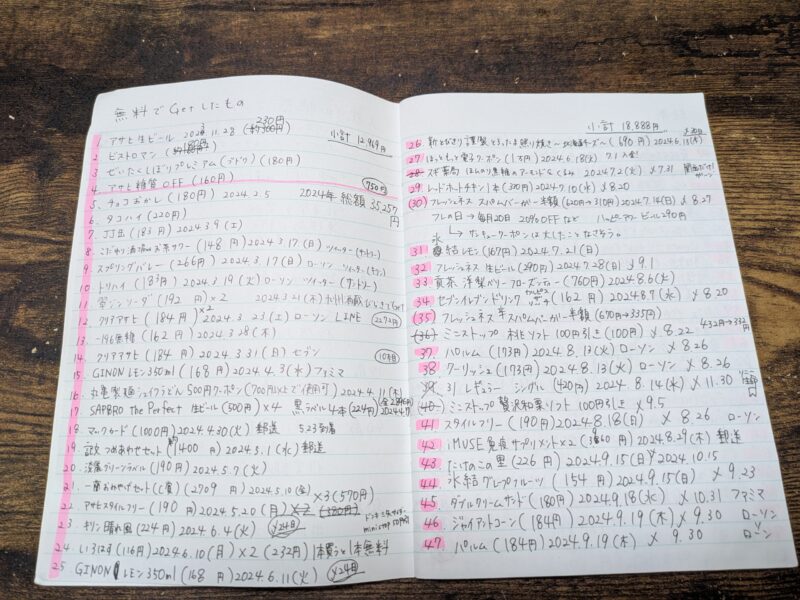 無料でGetしたもの
230円
1. アサヒ生ビール 2023.11.28 (約300円)
小計 12,969円
2. ビストロマン (180円)
3. ぜいたくしぼりプレミアム(ブドウ) (180円)
4. アサヒ糖質OFF (160円)
750円
5. チョコおかし (180円) 2024.2.5
2024年 総額 35,257円
6. タコハイ (220円)
7. JJ缶 (183円) 2024.3.9 (土)
8. こだわり酒場のお茶サワー (148円) 2024.3.17 (日) ツイッター(サントリー)
9. スプリングバレー (266円) 2024.3.17 (日) ローソン ツイッター(キリン)
10. トリハイ (183円) 2024.3.19 (火) ローソン ツイッター(サントリー)
11. (192円)×2 2024.3.21 (木)
12. クリアアサヒ (184円)×2 2024.3.23 (土) ローソン LINE
2272円
13. 一番搾り無糖 (162円) 2024.3.28 (木)
14. クリアアサヒ (184円) 2024.3.31 (日) セブン
10本目
15. GINON レモン350ml (168円) 2024.4.3 (水) ファミマ
16. 丸亀製麺シェイクうどん500円クーポン (700円以上で使用可) 2024.4.11 (木)
17. SAPBRO the Perfect 生ビール (500円)×4 黒ラベル4本 (224円) 2024.4.17
18. マックカード (1000円) 2024.4.30 (火) 郵送 5.23到着
19. つめあわせセット (約1400円) 2024.5.1 (水) 郵送
20. 淡麗グリーンラベル (190円) 2024.5.7 (火)
21. 一蘭おみやげセット(C賞) (2709円) 2024.5.10 (金)
22. アサヒスタイルフリー (190円) 2024.5.20 (月) ×2 (380円) ×3 (570円)
23. キリン晴れ風 (224円) 2024.6.4 (火) 〆24日
mini stop 50円引
24. いろはす (116円) 2024.6.10 (月) ×2 (232円) 1本買うと1本無料
25. GINON レモン350ml (168円) 2024.6.11 (火) 〆24日
小計 18,888円
26. 新とびきり 謹製 とろったま照り焼き〜北海道チーズ〜 (690円) 2024.6.13 (木)
27. ほっともっと電子クーポン (1万円) 2024.6.18 (火) 7.1入金!
28. スギ薬局 ほんのり黒糖のアーモンドミルク 2024.7.2 (火) 〆7.31 関西だけ!
29. レッドホットチキン1本 (320円) 2024.7.10 (水) 〆8.20
(30) フレッシュネス スパムバーガー半額 (620円→310円) 2024.7.14 (日) 〆8.27
フレの日→毎月20日 20%OFFなど ハッピーアワービール290円
→サンキュークーポンは大したことなさそう。
31 氷結レモン (167円) 2024.7.21 (日)
32. フレッシュネス 生ビール (290円) 2024.7.28 (日) 〆9.1
33 貢茶 洋梨ベリーフローズンティー (760円) 2024.8.6 (火)
34 セブンイレブンドリンク (162円) 2024.8.7 (水) 〆8.20
(35) フレッシュネス スパムバーガー半額 (670円→335円)
(36) ミニストップ 桃ソフト 100円引き (100円) 〆8.22 432円→332円
37. パルム (173円) 2024.8.13 (火) ローソン 〆8.26
38. クーリッシュ (173円) 2024.8.13 (火) ローソン 〆8.26
39. 31 レギュラー シングル (420円) 2024.8.14 (水) 〆11.30
40. ミニストップ 贅沢和栗ソフト 100円引き 〆9.5
41 スタイルフリー (190円) 2024.8.18 (日) 〆8.26 ローソン
42. iMUSE 免疫サプリメント×2 (360円) 2024.8.29 (木) 郵送
43. たけのこの里 (226円) 2024.9.15 (日) 〆2024.10.15
44. 氷結グレープフルーツ (154円) 2024.9.15 (日) 〆9.23
45 ダブルクリームサンド (180円) 2024.9.18 (水) 〆10.31 ファミマ
46 ジャイアントコーン (184円) 2024.9.19 (木) 〆9.30 ローソン
47. パルム (184円) 2024.9.19 (木) 〆9.30 ローソン